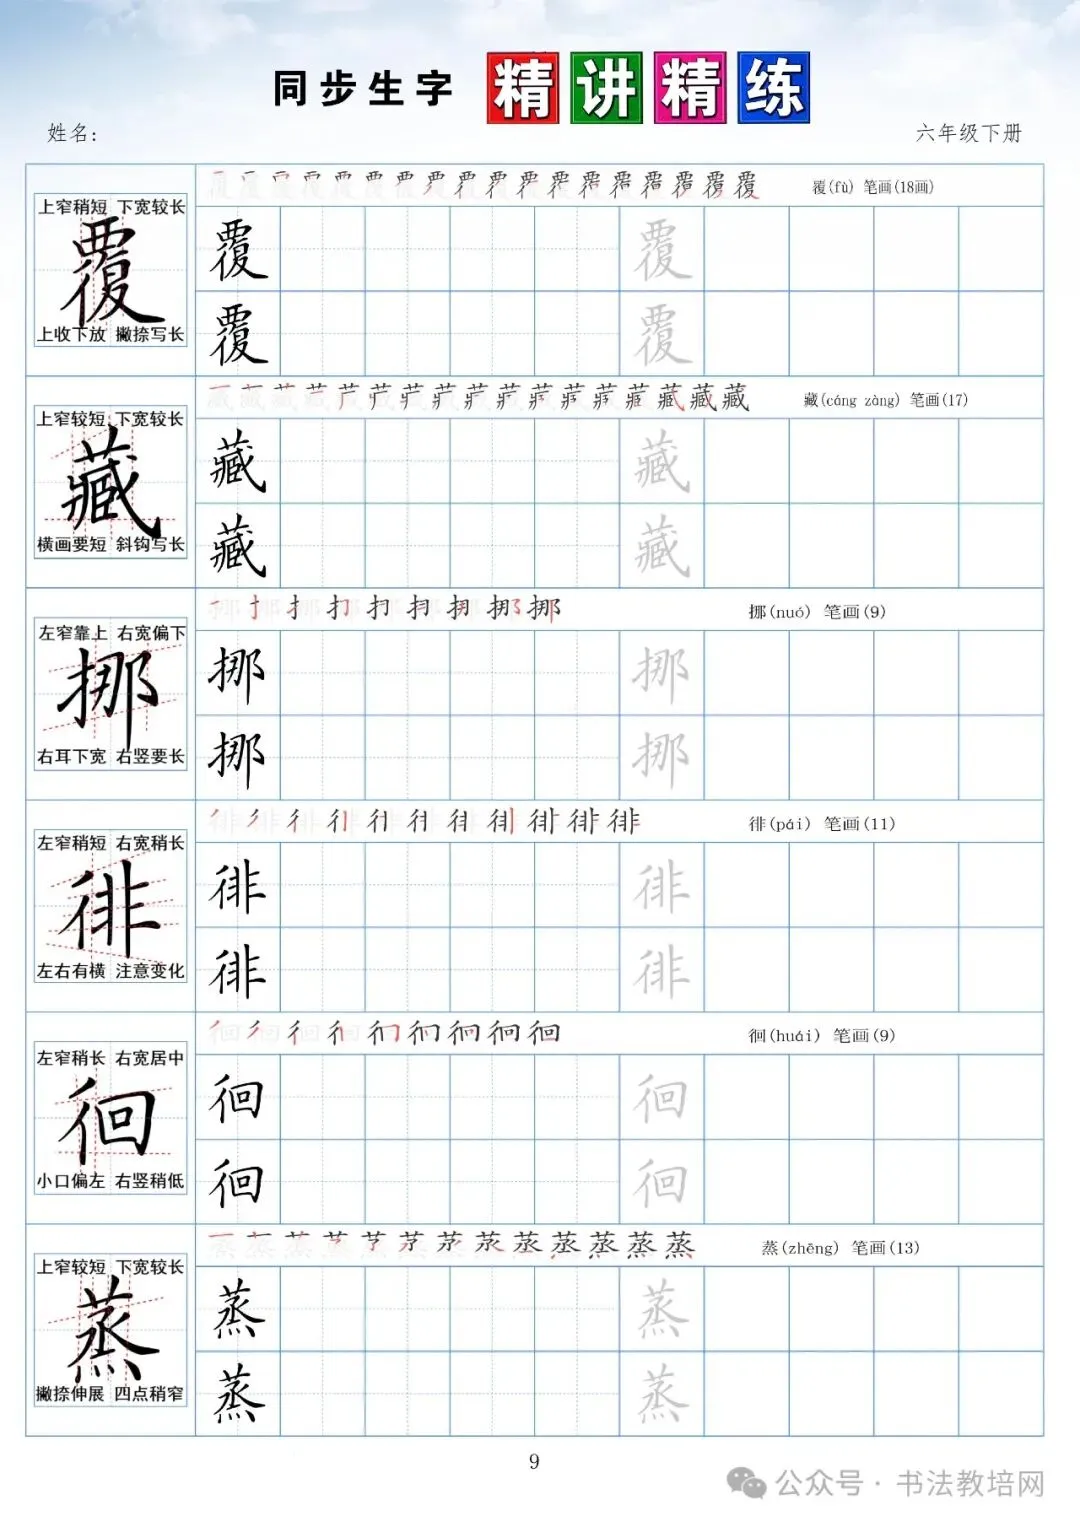 同步生字 精讲精练
姓名:
六年级下册
上窄稍短 下宽较长
覆
上收下放 撇捺写长
覆(fù) 笔画(18画)
覆 覆
覆 覆
上窄较短 下宽较长
藏
横画要短 斜钩写长
藏(cáng zàng) 笔画(17)
藏 藏
藏 藏
左窄靠上 右宽偏下
挪
右耳下宽 右竖要长
挪(nuó) 笔画(9)
挪 挪
挪 挪
左窄稍短 右宽稍长
徘
左右有横 注意变化
徘(pái) 笔画(11)
徘 徘
徘 徘
左窄稍长 右宽居中
徊
小口偏左 右竖稍低
徊(huái) 笔画(9)
徊 徊
徊 徊
上窄较短 下宽较长
蒸
撇捺伸展 四点稍窄
蒸(zhēng) 笔画(13)
蒸 蒸
蒸 蒸
9
公众号·书法教培网